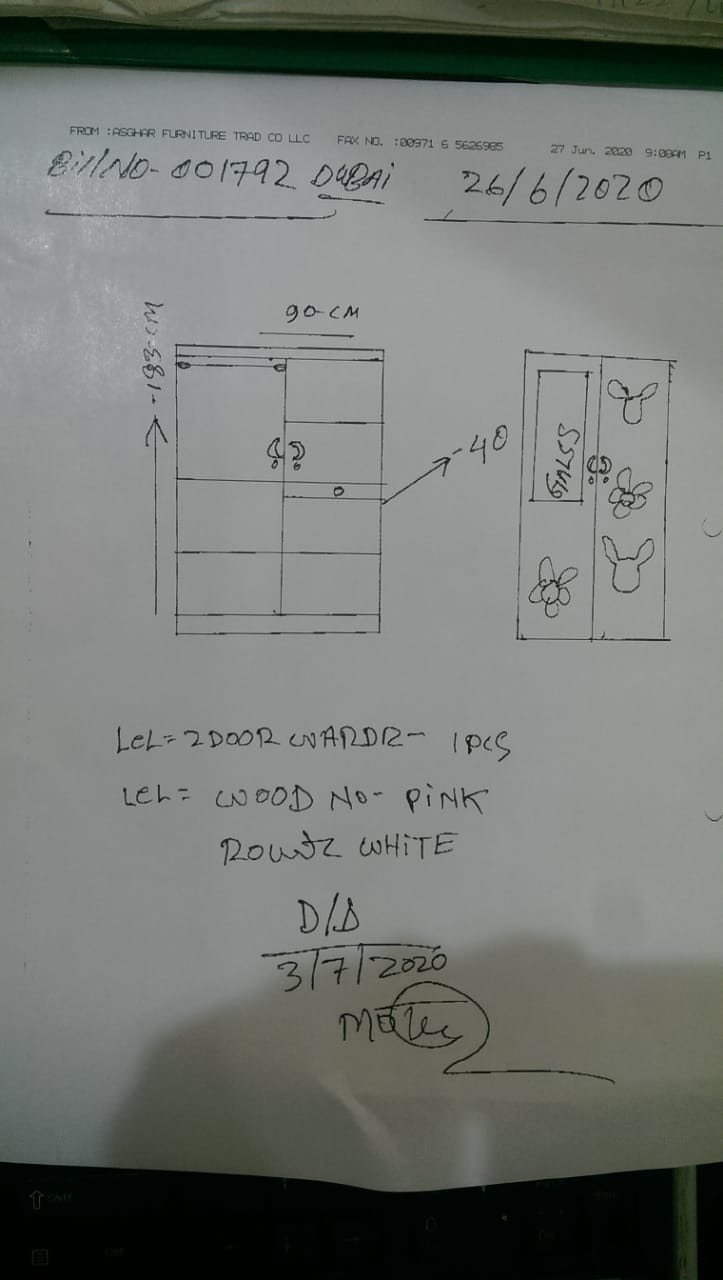 FROM :ASGHAR FURNITURE TRAD CO LLC FAX NO. :00971 6 5626985 27 Jun. 2020 9:08AM P1
Bill NO- 001792 DUBAI 26/6/2020
90-CM
-183-CM
-40
LEL= 2DOOR WARDR- 1PCS
LEL= WOOD NO- PiNK
WHiTE
D/D
3/7/2020
Shift
Ctrl